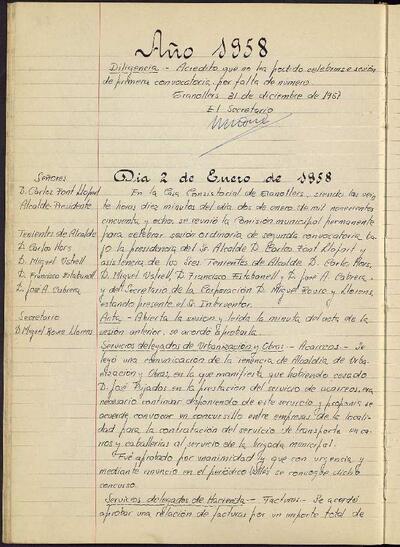 Año 1958
Diligencia.- Acredito que no ha podido celebrarse sesión
de primera convocatoria por falta de número.
Granollers 31 de diciembre de 1957
El Secretario
Dia 2 de Enero de 1958
Señores
D. Carlos Font Llopart
Alcalde-Presidente
Tenientes de Alcalde
D. Carlos Hors
D. Miguel Ustrell
D. Francisco Estabanell
D. José A. Cabrera
Secretario
D. Miguel Rovira Llorens
En la Casa Consistorial de Granollers, siendo las vein-
te horas diez minutos del dia dos de enero de mil novecientos
cincuenta y ocho, se reunió la Comisión municipal permanente
para celebrar sesión ordinaria de segunda convocatoria, ba-
jo la presidencia del Sr. Alcalde D. Carlos Font Llopart y
asistencia de los Sres. Tenientes de Alcalde D. Carlos Hors,
D. Miguel Ustrell, D. Francisco Estabanell y D. José A. Cabrera,
y del Secretario de la Corporación D. Miguel y Llorens,
estando presente el Sr. Interventor.
Acta.- Abierta la sesión y leida la minuta del acta de la
sesión anterior, se acordó aprobarla.
Servicios delegados de Urbanización y Obras.- Acarreos.- Se
leyó una comunicación de la tenencia de Alcaldia de Urba-
nización y Obras, en la que manifiesta que habiendo cesado
D. José Pujadas en la prestación del servicio de acarreos, era
necesario continuar disponiendo de este servicio y proponia se
acuerde convocar un concursillo entre empresas de la locali-
dad para la contratación del servicio de transporte en ca-
rros y caballerías al servicio de la brigada municipal.
Fué aprobado por unanimidad y que con urgencia y
mediante anuncio en el periódico se convoque dicho
concurso.
Servicios delegados de Hacienda.- Facturas.- Se acordó
aprobar una relación de facturas por un importe total de